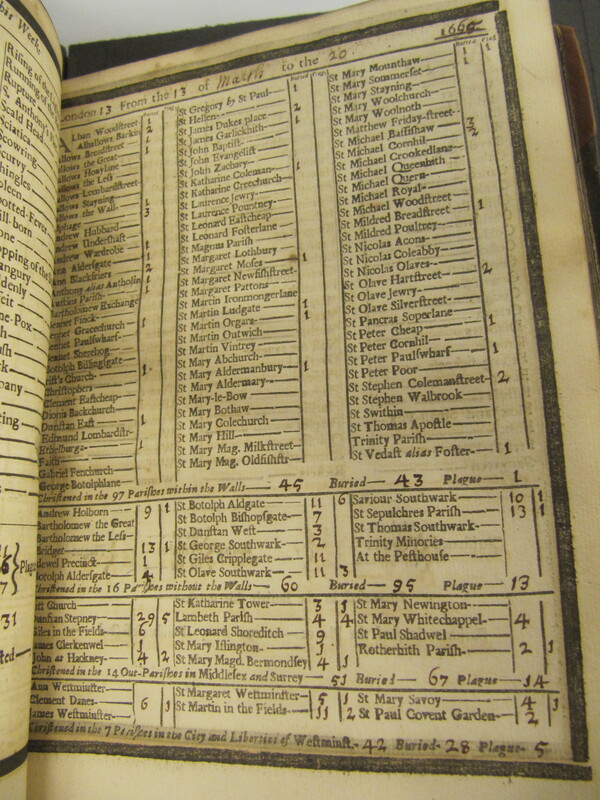 his Week
Rising of the
Running of
Rupture
S. Anthony's
Scald Head
Sciatica
Scowring
Scurvy
Shingles
Spleen
Spotted Fever
Still-born
Stopping of the
Strangury
Suddenly
1666
London 13 From the 13 of March to the 20
Buried Plag.
Alban Woodstreet
Alhallows Barking 2
Alhallows Breadstreet 1
Alhallows the Great
Alhallows Honylane
Alhallows the Less
Alhallows Lombardstreet
Alhallows Stayning
Alhallows the Wall
Alphage
Andrew Hubbard
Andrew Undershaft
Andrew Wardrobe
Ann Aldersgate
Ann Blackfriers
Anthony alias Antholin
Austins Parish
Bartholomew Exchange
Bennet Finck
Bennet Gracechurch 1
Bennet Paulswharf
Bennet Sherehog
Botolph Billingsgate
Christ's Church 1
Christophers
Clement Eastcheap
Dionis Backchurch
Dunstan East 1
Edmund Lombardstr.
Ethelburga 1
Faith
Gabriel Fenchurch
George Botolphlane
St Gregory by St Paul 1
St Hellen
St James Dukes place 2
St James Garlickhith 1
St John Baptist
St John Evangelist
St John Zachary 1
St Katharine Coleman
St Katharine Creechurch
St Laurence Jewry
St Laurence Pountney
St Leonard Eastcheap
St Leonard Fosterlane
St Magnus Parish
St Margaret Lothbury 1
St Margaret Moses
St Margaret Newfishstreet
St Margaret Pattons
St Martin Ironmongerlane
St Martin Ludgate 1
St Martin Orgars 1
St Martin Outwich
St Martin Vintrey
St Mary Abchurch
St Mary Aldermanbury 1
St Mary Aldermary
St Mary-le-Bow
St Mary Bothaw
St Mary Colechurch
St Mary Hill
St Mary Mag. Milkstreet
St Mary Mag. Oldfishstr.
St Mary Mounthaw
St Mary Sommerset 1
St Mary Stayning
St Mary Woolchurch
St Mary Woolnoth
St Matthew Friday-street
St Michael Bassishaw
St Michael Cornhil
St Michael Crookedlane
St Michael Queenhith
St Michael Quern
St Michael Royal
St Michael Woodstreet
St Mildred Breadstreet 1
St Mildred Poultrey
St Nicolas Acons
St Nicolas Coleabby
St Nicolas Olaves
St Olave Hartstreet 2
St Olave Jewry
St Olave Silverstreet
St Pancras Soperlane 1
St Peter Cheap
St Peter Cornhil
St Peter Paulswharf 1
St Peter Poor
St Stephen Colemanstreet 2
St Stephen Walbrook
St Swithin
St Thomas Apostle
Trinity Parish
St Vedast alias Foster 1
Christened in the 97 Parishes within the Walls 45 Buried 43 Plague 1
Andrew Holborn 9 1
Bartholomew the Great
Bartholomew the Less
Bridget 13 1
Bridewel Precinct 1
Botolph Aldersgate 4
St Botolph Aldgate 11 6
St Botolph Bishopsgate 7
St Dunstan West 3
St George Southwark 2
St Giles Cripplegate 11
St Olave Southwark 11 3
Saviour Southwark 10 1
St Sepulchres Parish 13 1
St Thomas Southwark
Trinity Minories
At the Pesthouse
Christened in the 16 Parishes without the Walls 60 Buried 95 Plague 13
Christ Church
Dunstan Stepney 29 5
Giles in the Fields 6
James Clerkenwel 1
John at Hackney 4 2
St Katharine Tower 3 1
Lambeth Parish 4 4
St Leonard Shoreditch 9
St Mary Islington 1
St Mary Magd. Bermondsey 4 1
St Mary Newington
St Mary Whitechappel 4
St Paul Shadwel
Rotherhith Parish 2 1
Christened in the 14 Out-Parishes in Middlesex and Surrey 51 Buried 67 Plague 14
Ann Westminster
Clement Danes 6 1
James Westminster
St Margaret Westminster 5 1
St Martin in the Fields 11 2
St Mary Savoy 4
St Paul Covent Garden 2
Christened in the 7 Parishes in the City and Liberties of Westminst. 42 Buried 28 Plague 5